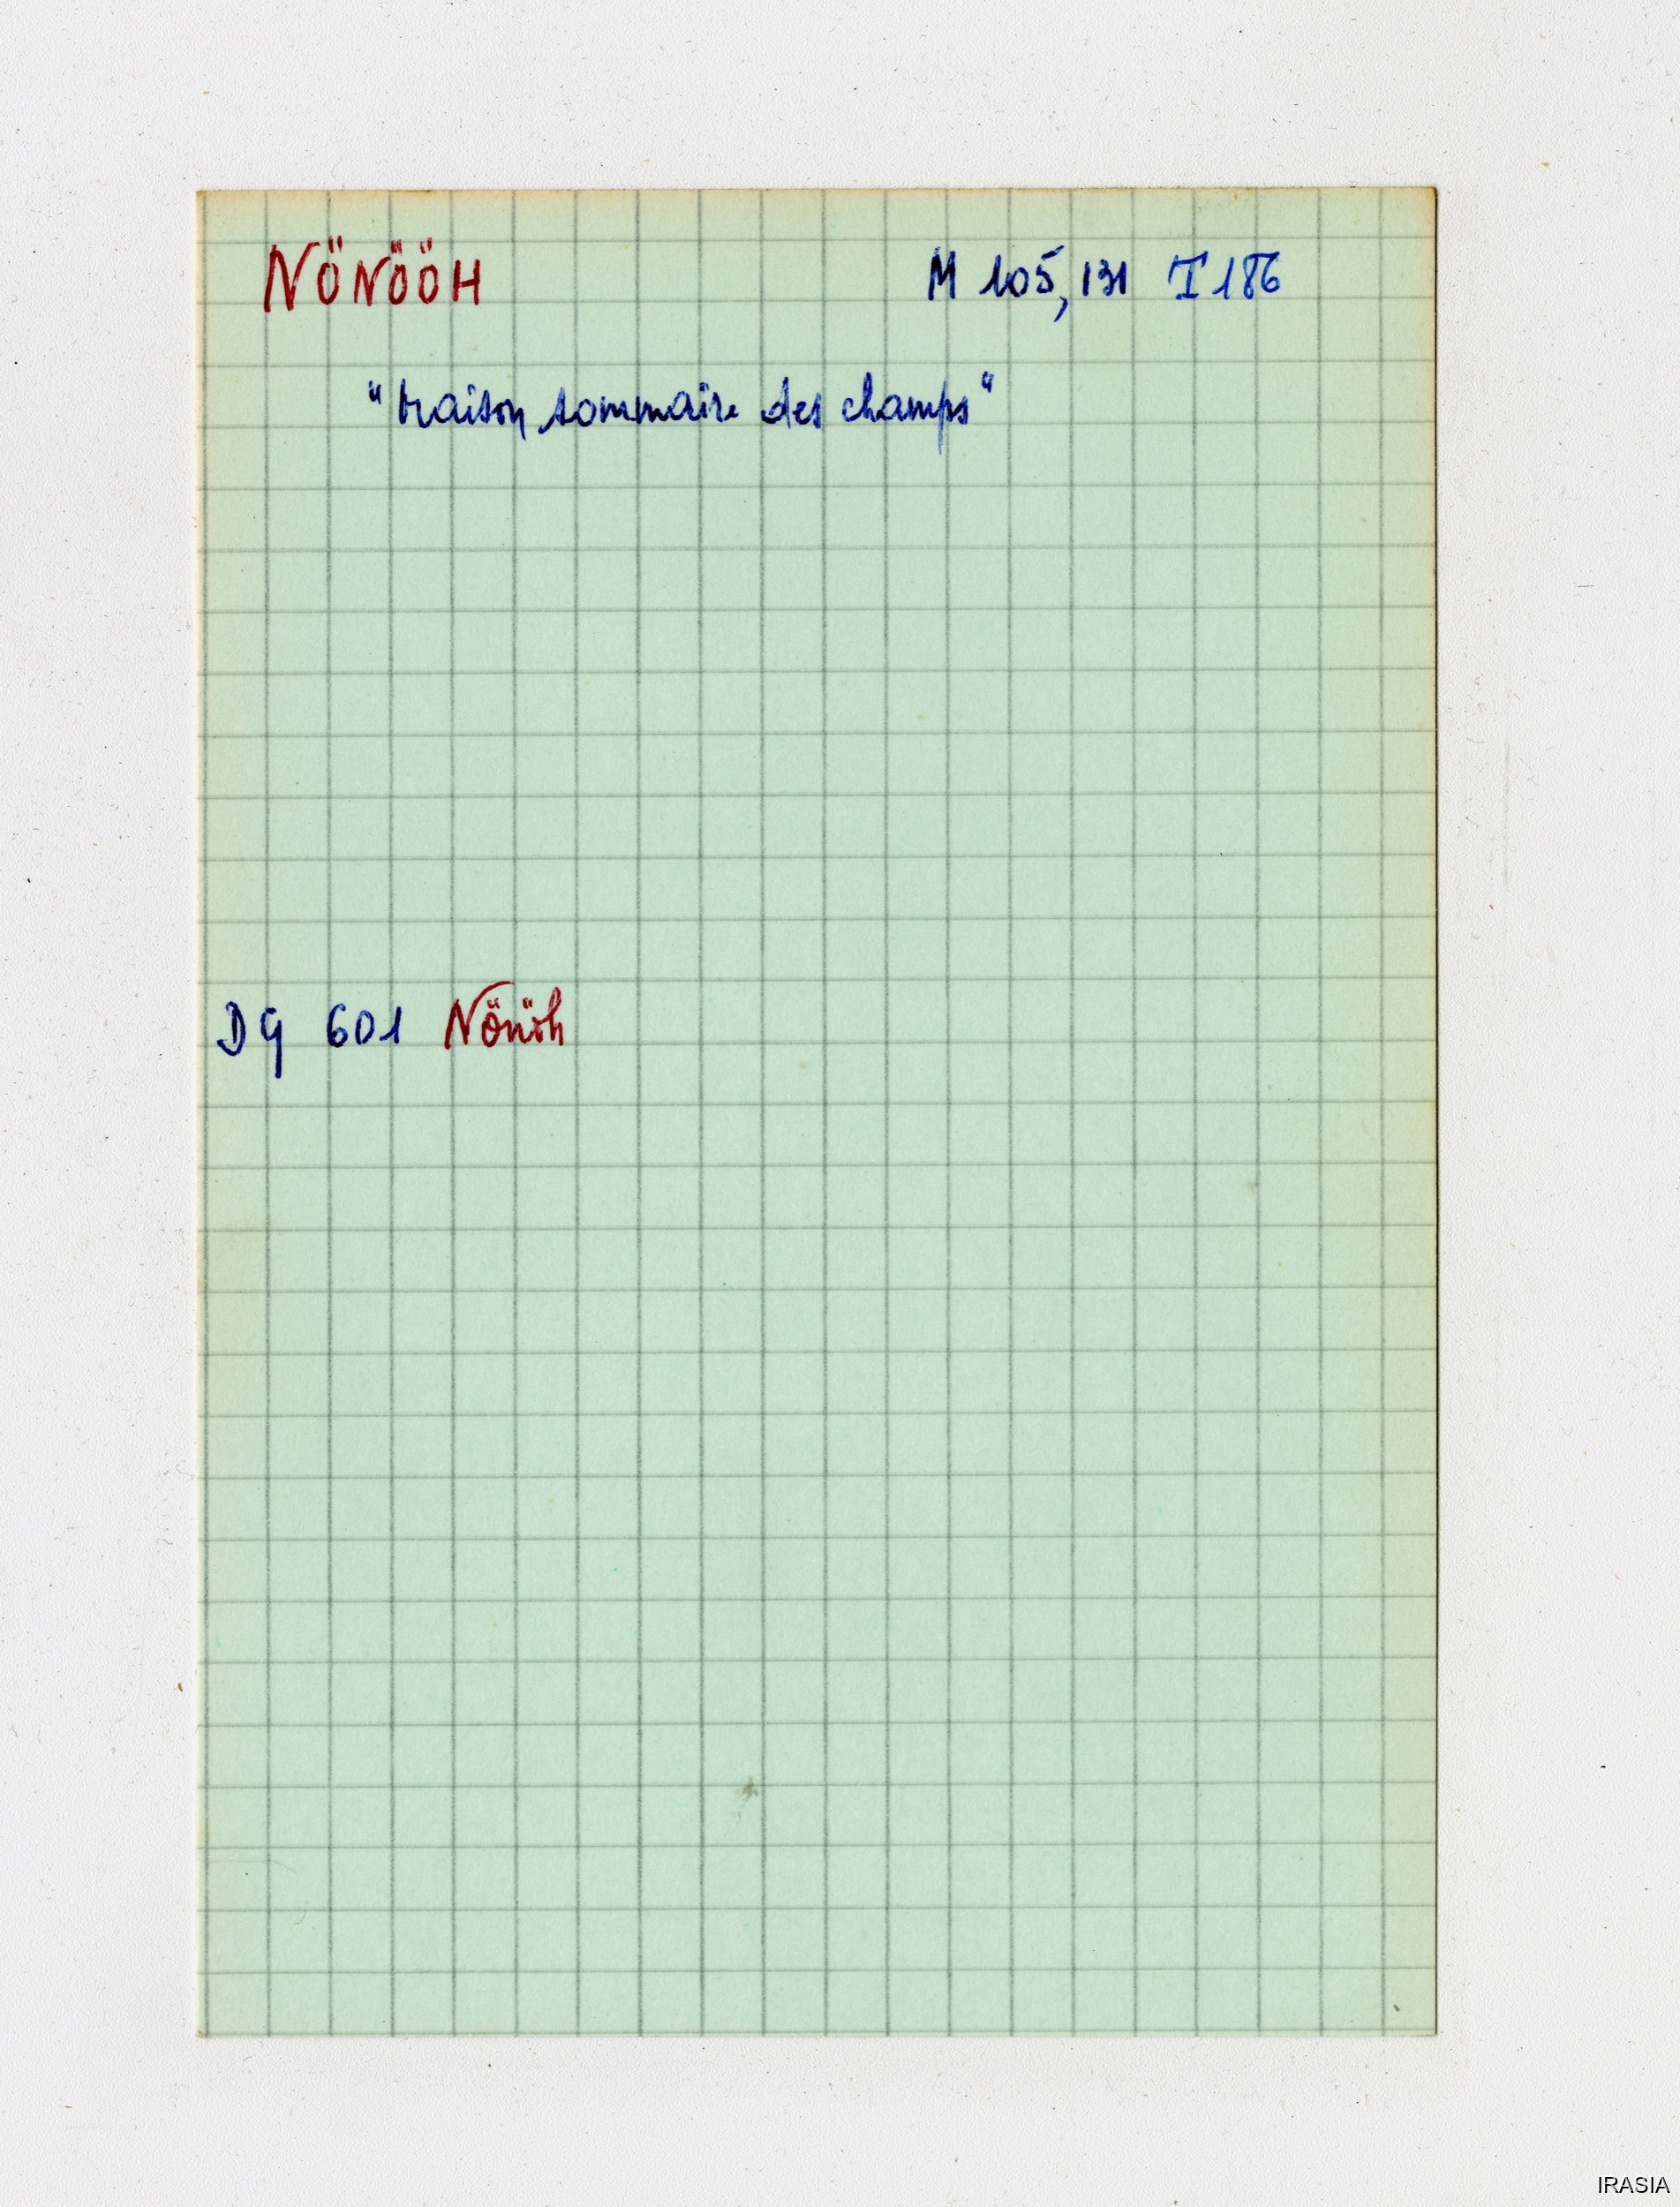 NÖNÖÖH M 105, 131 I 186
"maison sommaire des champs"
DG 601 Nönöh
IRASIA